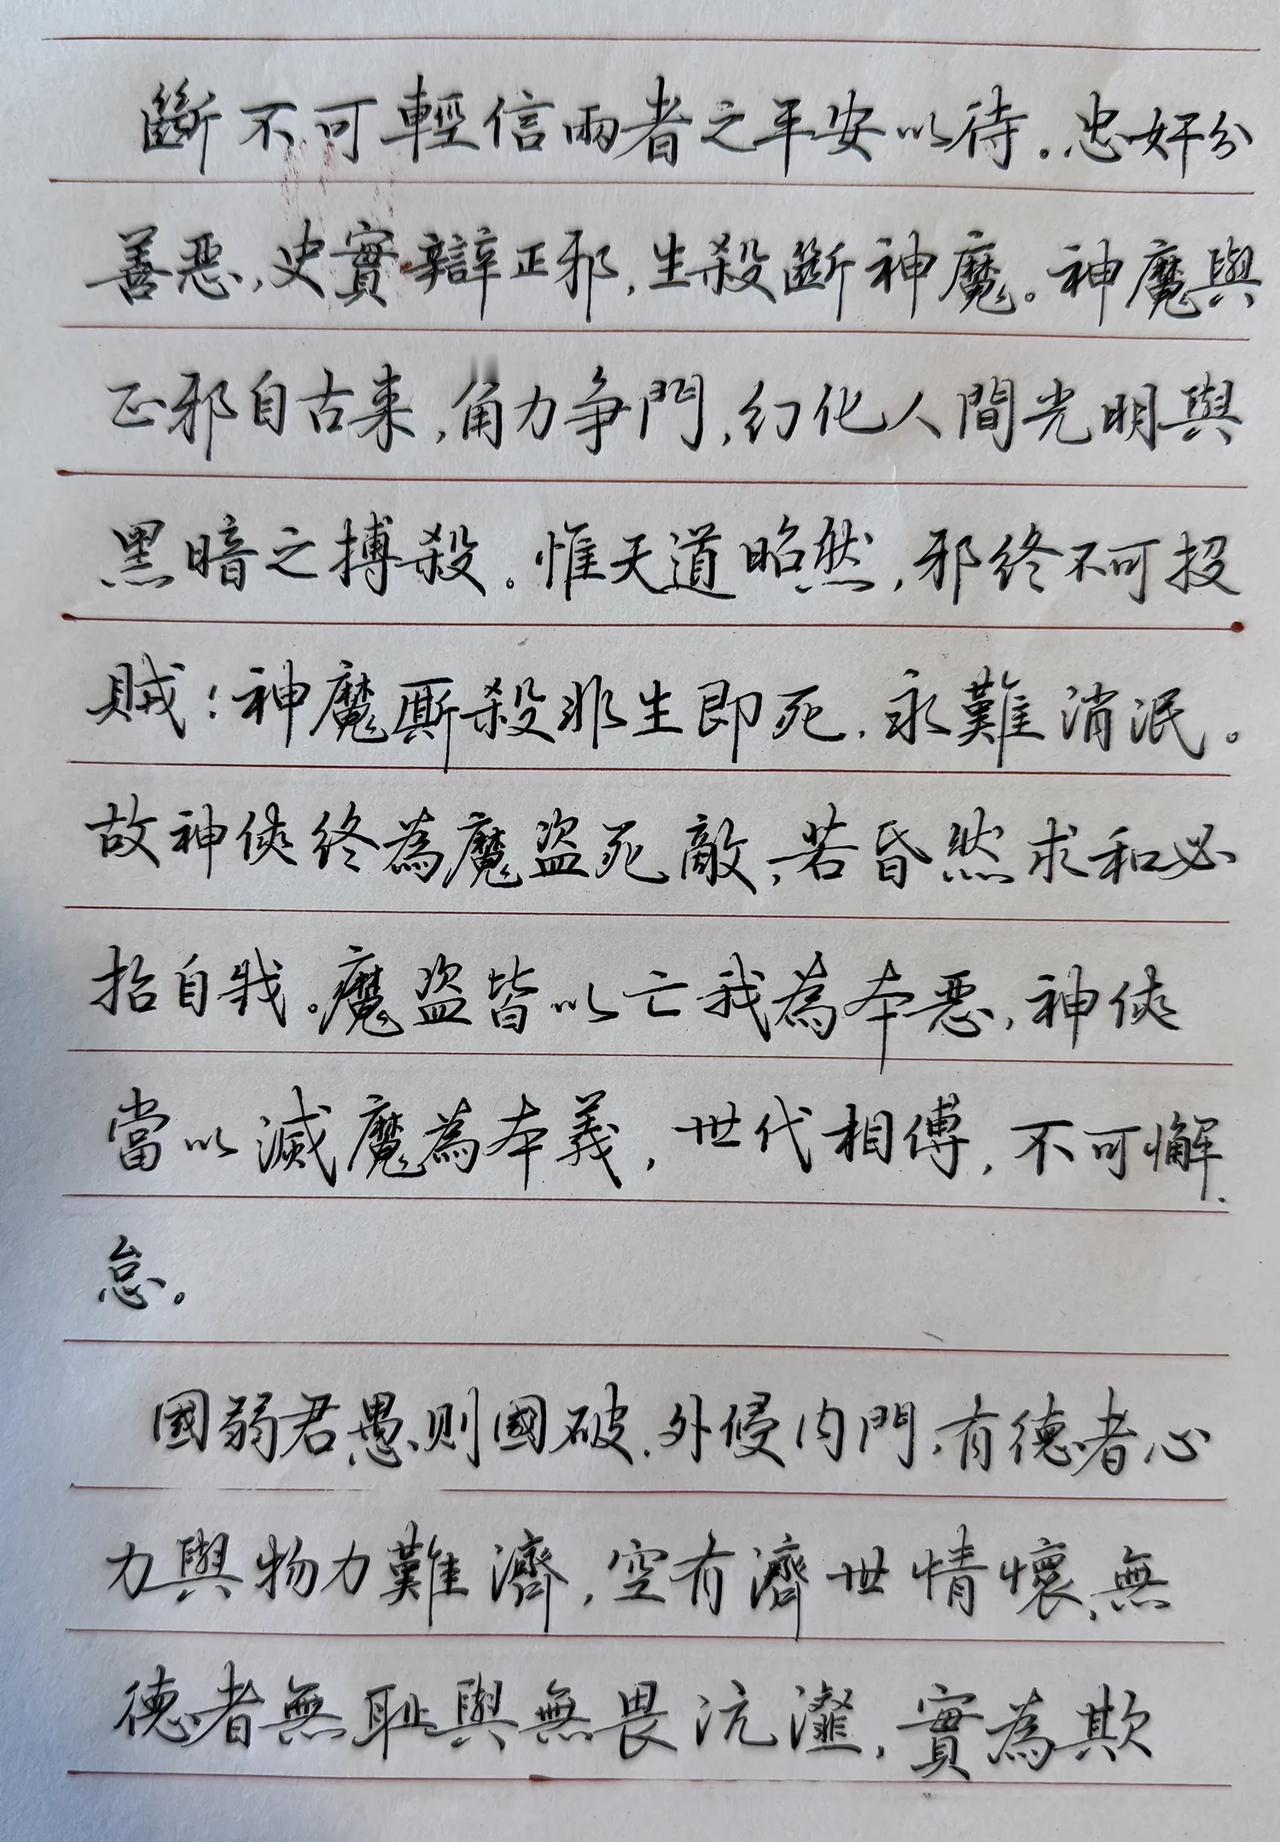 斷不可輕信兩者之平安以待。忠奸分
善惡,史實辯正邪,生殺斷神魔。神魔與
正邪自古来,角力争門,幻化人間光明與
黑暗之搏殺。惟天道昭然,邪终不可投
賊!神魔厮殺非生即死,永難消泯。
故神俠终為魔盗死敵,若昏然求和必
招自戕。魔盗皆以亡我為本惡,神俠
當以滅魔為本義,世代相傳,不可懈
怠。
國弱君愚則國破,外侵内門,有德者心
力與物力難濟,空有濟世情懷,無
德者無耻與無畏沆瀣,實為欺